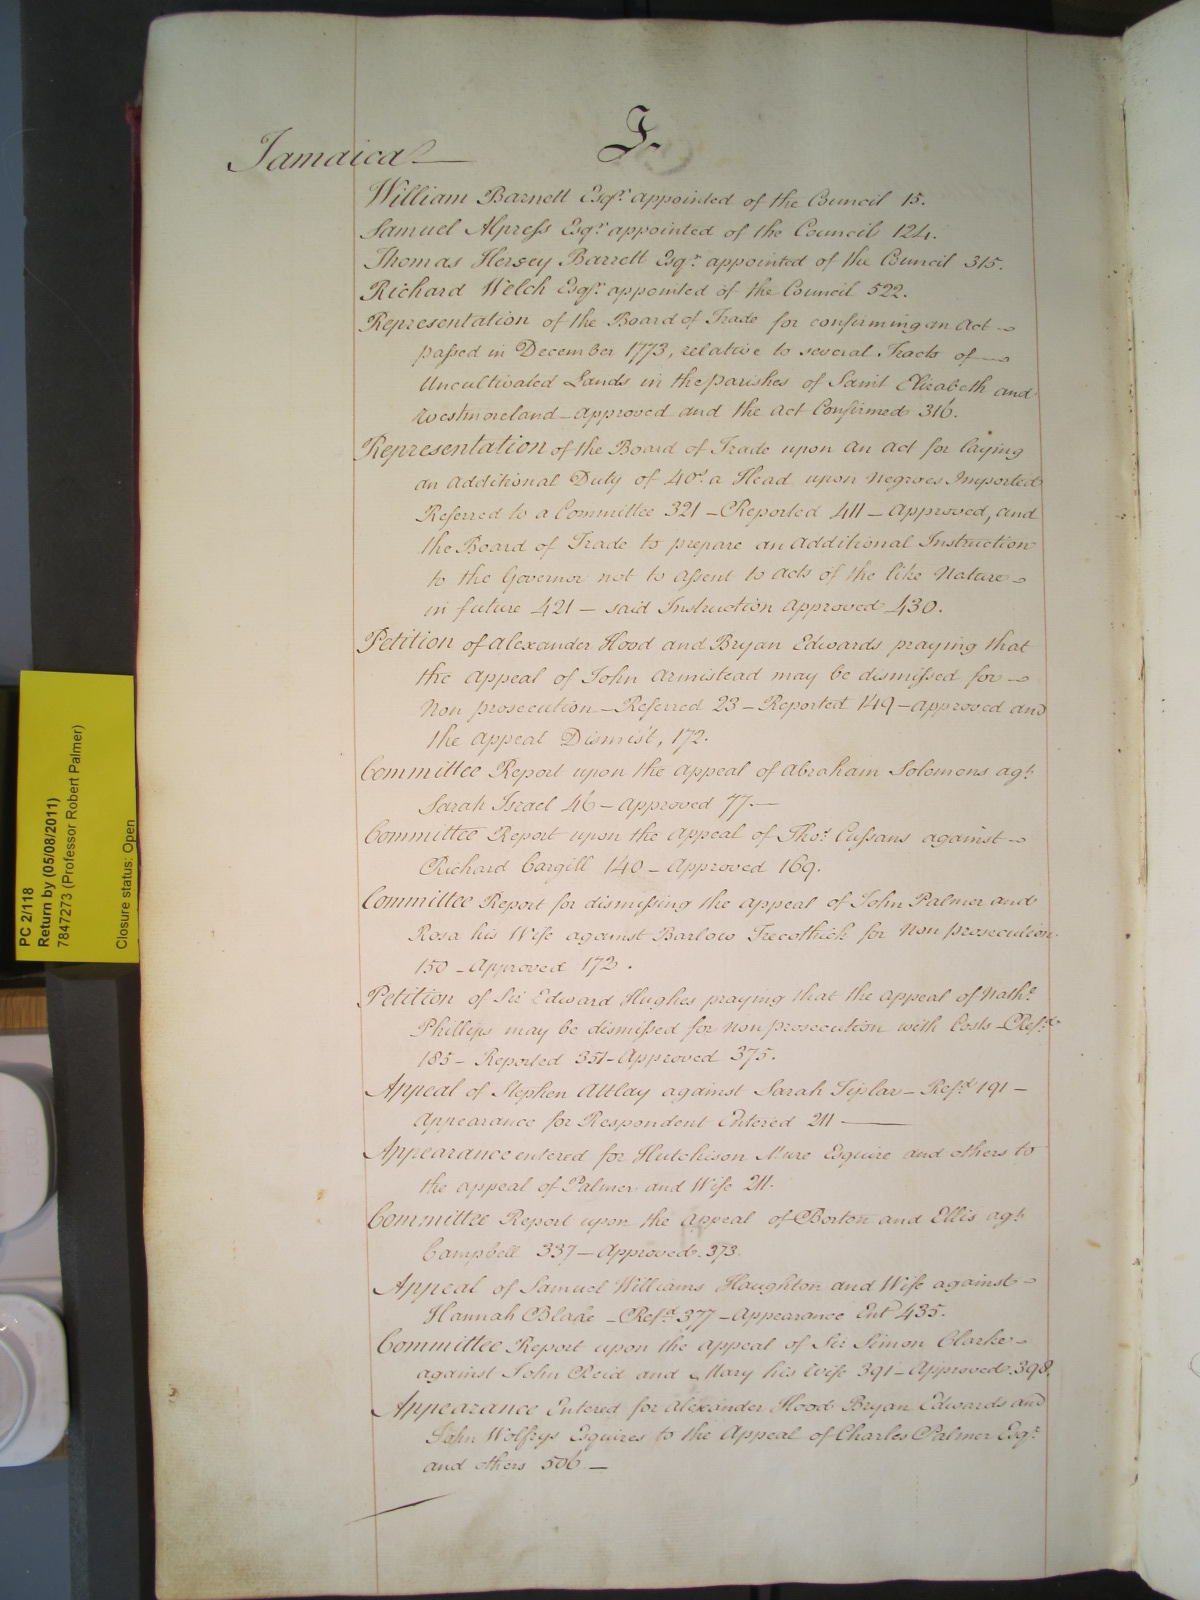 J.
Jamaica
William Barnett Esqr. appointed of the Council 15.
Samuel Alpress Esqr. appointed of the Council 124.
Thomas Hersey Barrett Esqr. appointed of the Council 315.
Richard Welch Esqr. appointed of the Council 522.
Representation of the Board of Trade for confirming an Act
passed in December 1773, relative to several Tracts of
Uncultivated Lands in the parishes of Saint Elizabeth and
Westmoreland - approved and the Act Confirmed 316.
Representation of the Board of Trade upon an act for laying
an Additional Duty of 40s. a Head upon Negroes Imported
Referred to a Committee 321 - Reported 411 - Approved, and
the Board of Trade to prepare an Additional Instruction
to the Governor not to assent to acts of the like Nature
in future 421 - said Instruction approved 430.
Petition of Alexander Hood and Bryan Edwards praying that
the Appeal of John Armistead may be dismissed for
Non prosecution - Referred 23 - Reported 149 - approved and
the appeal Dismist, 172.
Committee Report upon the appeal of Abraham Solomons agt.
Sarah Israel 46 - approved 77. -
Committee Report upon the appeal of Thos. Cussans against
Richard Cargill 140 - Approved 169.
Committee Report for dismissing the appeal of John Palmer and
Rosa his Wife against Barlow Trecothick for Non prosecution
150 - Approved 172.
Petition of Sir Edward Hughes praying that the appeal of Nathl.
Phillips may be dismissed for non prosecution with Costs - Refd.
185 - Reported 351 - Approved 375.
Appeal of Stephen Attlay against Sarah - Refd. 191 -
Appearance for Respondent Entered 211 -
Appearance entered for Hutchison Mure Esquire and others to
the appeal of Palmer and Wife 211.
Committee Report upon the appeal of Borton and Ellis agt.
Campbell 337 - Approved 373.
Appeal of Samuel Williams Haughton and Wife against
Hannah Blake - Refd. 377 - Appearance Ent 435.
Committee Report upon the appeal of Sir Simon Clarke
against John Reid and Mary his wife 391 - Approved 398.
Appearance Entered for Alexander Hood Bryan Edwards and
John Wolfrys Esquires to the Appeal of Charles Palmer Esqr.
and others 506 -
PC 2/118
Return by (05/08/2011)
7847273 (Professor Robert Palmer)
Closure status: Open